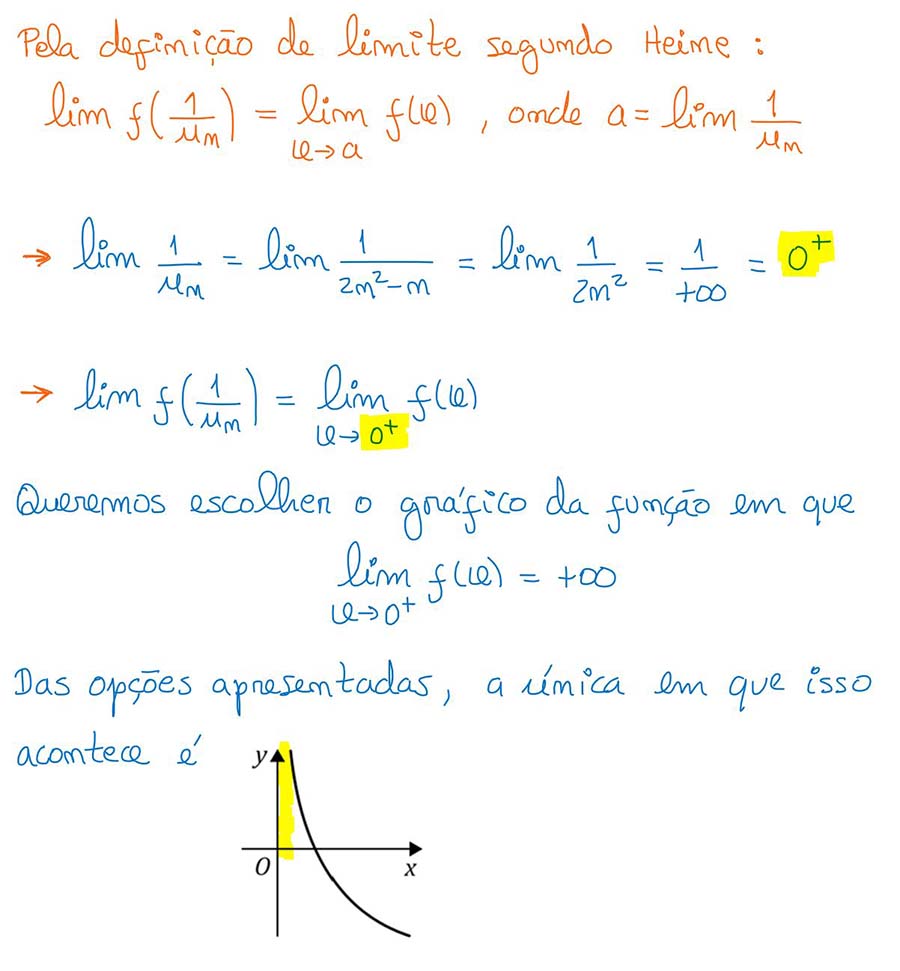 Pela definição de limite segundo Heine :
lim f(1/uₙ) = lim f(x) , onde a = lim 1/uₙ
x→a
→ lim 1/uₙ = lim 1/(2n²-n) = lim 1/(2n²) = 1/+∞ = 0⁺
→ lim f(1/uₙ) = lim f(x)
x→0⁺
Queremos escolher o gráfico da função em que
lim f(x) = +∞
x→0⁺
Das opções apresentadas, a única em que isso
acontece é
y
O
x